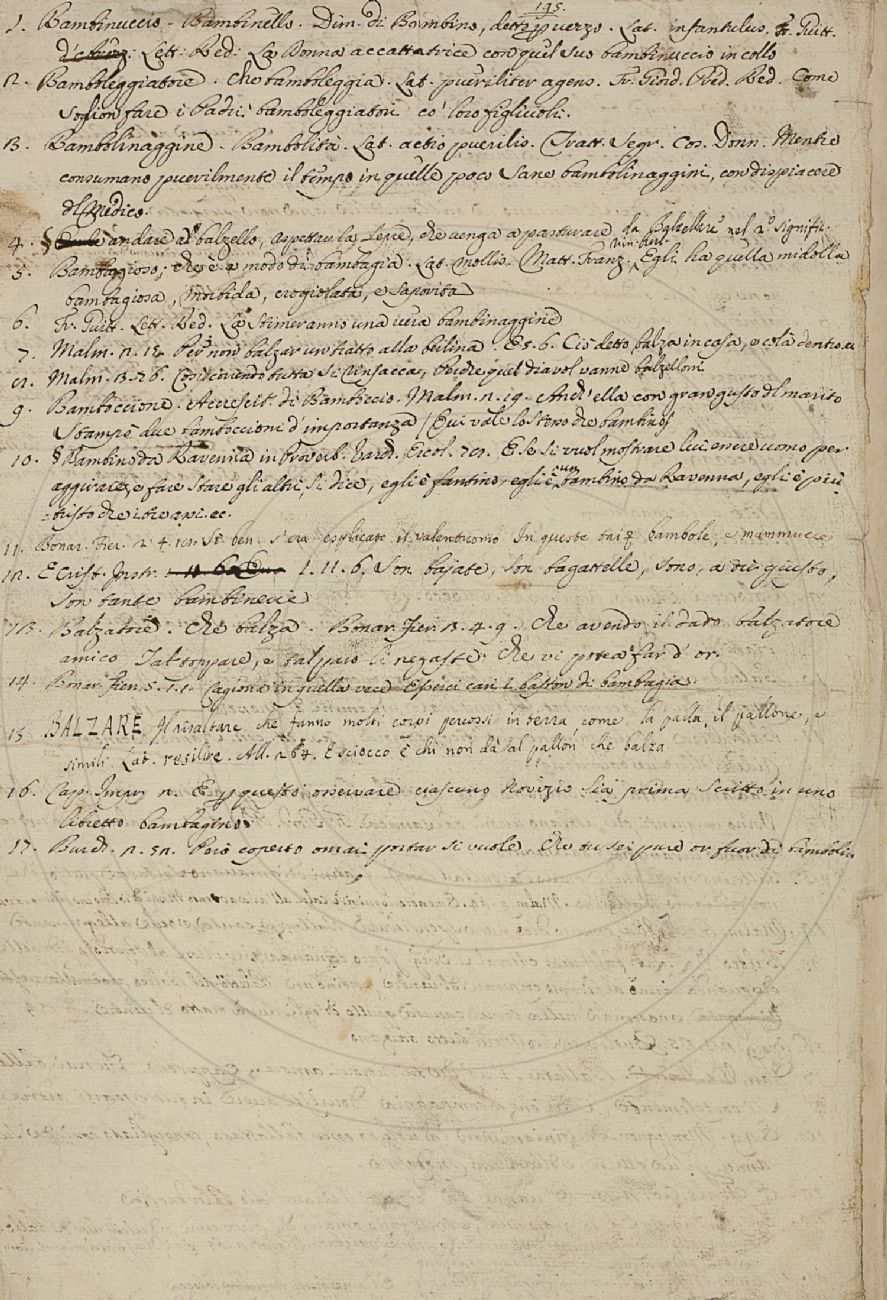 195.
1. Bambinuccio - Bambinello. Dim. di Bambino, detto p vezzo. Lat. infantulus. Fr. Guitt.
Lett: Red: La Donna accattatrice con quel suo bambinuccio in collo
2. Bamboleggiatore. Che bamboleggia. Lat. pueriliter agens. Fr. Giord. Pred. Red. Come
soglion fare i Padri bamboleggiatori co' loro figliuoli.
3. Bambolinaggine. Bambolità. Lat. actio puerilis. Tratt. Segr. Cos. Donn. Mentre
consumano puerilmente il tempo in quelle poco sane bambolinaggini, con dispiacere
del Medico.
4. § andare al balzello, aspettar la lepre, che venga a pasturare da nel 2.° signific.
5. Bambagioso, che è a modo di bambagia. Lat. mollis. Matt. Franz. rim. burl. Egli ha quella midolla
bambagiosa, morbida, crogiolata, e saporita
6. Fr. Guitt. Lett. Red. La stimeranno una vera bambinaggine
7. Malm. 2. 15. Per non balzar un tratto alla berlina. E 5. 6. Ciò detto balza in casa, e colà dentro
Malm. 3. 26. Così vivendo tutta si rinsacca, quel diavol vanne balzelloni
9. Bamboccione. Accrescit. di Bamboccio. Malm. 2. 19. Ond' ella con gran gusto del marito
Stampò due bamboccioni d' importanza (Qui vale lo stesso che bambino)
10. § Bambino da Ravenna in Proverb. Varch. Ercol. E se si vuol mostrare lui essere uomo per
aggirare, e fare stare gli altri, si dice, egli è fantino, egli è un bambino da Ravenna, egli è più
tristo che i tre assi. ec.
11. Bonar. Fier. 2. 4. St. ben. s'era esplicato il valentuomo In queste bambole, e mammucce
12. E Crist. Instr. 1. 11. 6. Son bajate, son bagattelle, sono, a dir giusto,
son tante bambinerie
13. Balzatore. Che balza. Bonar. Fier. 3. 4. 9. Che avendo il dado balzatore
amico Tal toppare, e tal paro li negaste Che vi potea far d' or.
14. Bonar. Fier. 5. 1. 1. Cagione in quella vece Esserci cari i baston di bambagia.
15. BALZARE Il risaltare che fanno molti corpi percossi in terra, come la palla, il pallone, e
simili. Lat. resilire. All. 264. E sciocco è chi non dà sal pallon che balza
16. Cap. Impr. 2. E questo osservare ciascuno Novizio sia prima scritto in uno
libretto bambagino
17. Burch. 2. 52. Però coperto omai portar si vuole, Che tu sei pure or fuor di bambolin